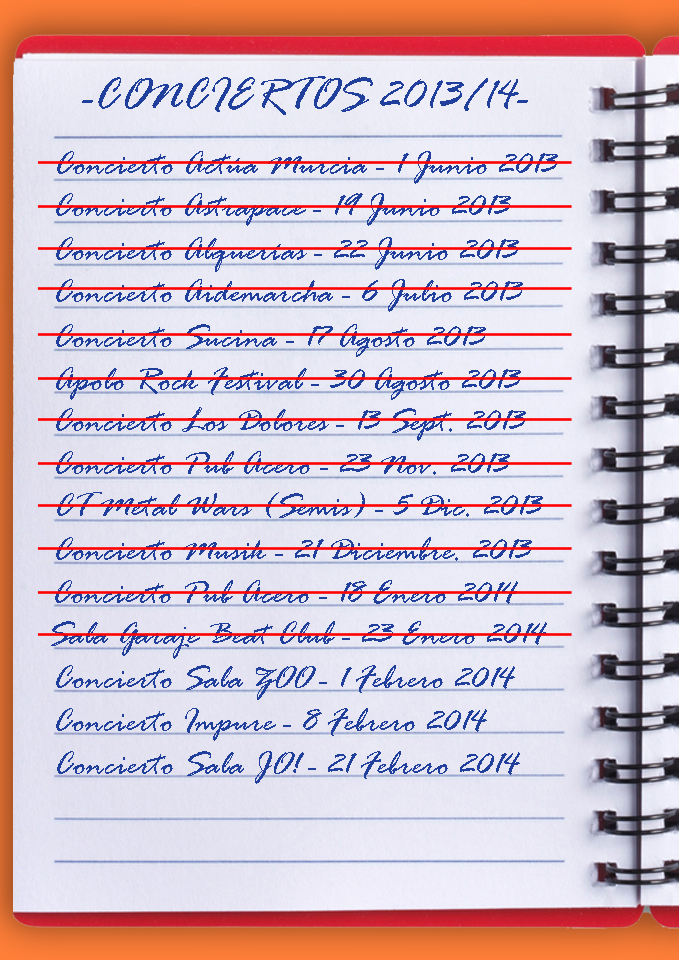 -CONCIERTOS 2013/14-
Concierto Actúa Murcia - 1 Junio 2013
Concierto Astrapace - 19 Junio 2013
Concierto Alquerías - 22 Junio 2013
Concierto Aidemarcha - 6 Julio 2013
Concierto Sucina - 17 Agosto 2013
Apolo Rock Festival - 30 Agosto 2013
Concierto Los Dolores - 13 Sept. 2013
Concierto Pub Acero - 23 Nov. 2013
CT Metal Wars (Semis) - 5 Dic. 2013
Concierto Musik - 21 Diciembre. 2013
Concierto Pub Acero - 18 Enero 2014
Sala Garaje Beat Club - 23 Enero 2014
Concierto Sala ZOO - 1 Febrero 2014
Concierto Impure - 8 Febrero 2014
Concierto Sala JO! - 21 Febrero 2014